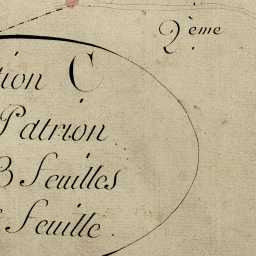 2.ème
tion C
Patrion
3 feuilles
feuille